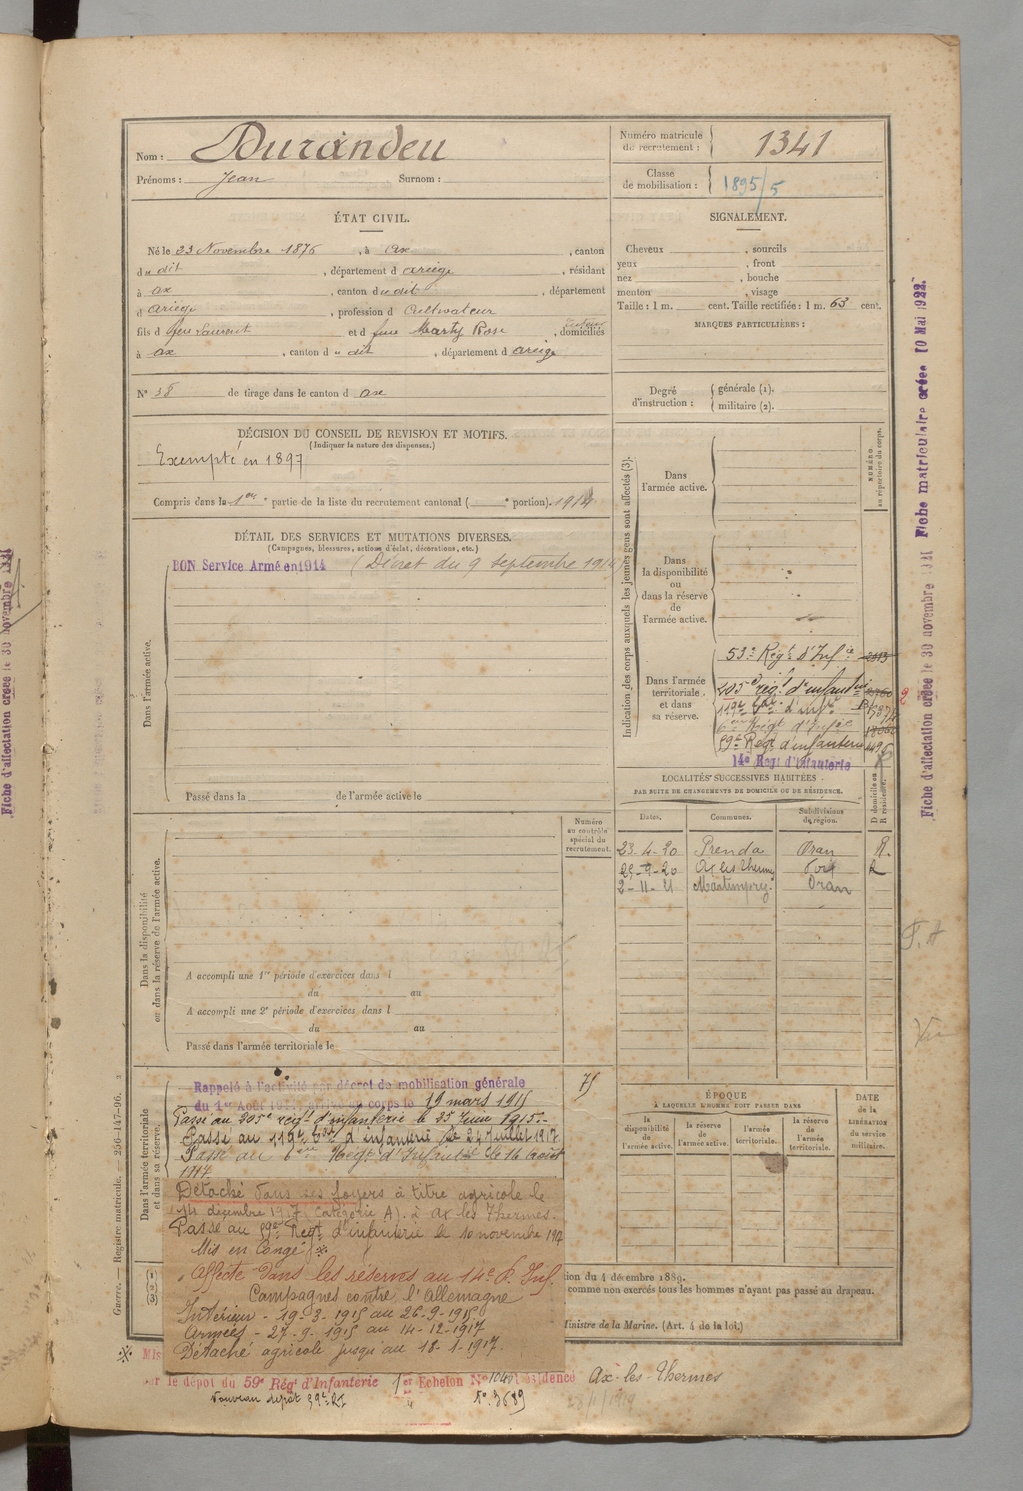 Nom : Durandeu
Prénoms : Jean Surnom :
Numéro matricule du recrutement : 1341
Classe de mobilisation : 1895/5
ÉTAT CIVIL.
Né le 23 Novembre 1876, à Ax, canton
du dit, département d Ariège, résidant
à Ax, canton du dit, département
d Ariège, profession d Cultivateur
fils d feu Laurent et d feue Marty Rose, domiciliés
à Ax, canton du dit, département d Ariège
N° 38 de tirage dans le canton d Ax
SIGNALEMENT.
Cheveux , sourcils
yeux , front
nez , bouche
menton , visage
Taille : 1 m. cent. Taille rectifiée : 1 m. 63 cent.
MARQUES PARTICULIÈRES :
Degré d'instruction : générale (1).
militaire (2).
DÉCISION DU CONSEIL DE REVISION ET MOTIFS.
(Indiquer la nature des dispenses.)
Exempté en 1897
Compris dans la 1ère partie de la liste du recrutement cantonal ( e portion). 1914
DÉTAIL DES SERVICES ET MUTATIONS DIVERSES.
(Campagnes, blessures, actions d'éclat, décorations, etc.)
BON Service Armé en 1914 (Décret du 9 septembre 1914)
Dans l'armée active.
Passé dans la de l'armée active le
Indication des corps auxquels les jeunes gens sont affectés (3).
NUMÉRO au répertoire du corps.
Dans l'armée active.
Dans la disponibilité ou dans la réserve de l'armée active.
Dans l'armée territoriale et dans sa réserve.
53e Régt d'Infie
205e régt d'infanterie
119e d'inf
6ème Régt d'Infie
59e Régt d'infanterie
14e Régt d'Infanterie
LOCALITÉS SUCCESSIVES HABITÉES
PAR SUITE DE CHANGEMENTS DE DOMICILE OU DE RÉSIDENCE.
Dates. Communes. Subdivisions de région. D domicile ou R résidence.
23-4-20 Prenda Oran R.
25-9-20 Ax les Thermes Foix R
2-11-21 Montenprez Oran
Dans la disponibilité ou dans la réserve de l'armée active.
Numéro au contrôle spécial du recrutement.
A accompli une 1re période d'exercices dans l
du au
A accompli une 2e période d'exercices dans l
du au
Passé dans l'armée territoriale le
Dans l'armée territoriale et dans sa réserve.
Rappelé à l'activité par décret de mobilisation générale
du 1er Août corps le 19 mars 1915
75
Passé au 205e régt d'infanterie le 25 Juin 1915.
Passé au 119e d'infanterie le 24 Juillet 1917
Passé au 6ème Régt d'Infanterie le 16 Août
1917.
Détaché dans ses foyers à titre agricole le
14 décembre 1917 (Catégorie A). à Ax les Thermes.
Passé au 59e Régt d'infanterie le 10 novembre 1917
Mis en Congé
Affecté dans les réserves au 14e R. Inf.
Campagnes contre l'Allemagne
Intérieur - 19-3-1915 au 26-9-1915
Armées - 27-9-1915 au 14-12-1917
Détaché agricole jusqu'au 18-1-1917.
ÉPOQUE
A LAQUELLE L'HOMME DOIT PASSER DANS
la disponibilité de l'armée active. la réserve de l'armée active. l'armée territoriale. la réserve de l'armée territoriale.
DATE de la LIBÉRATION du service militaire.
(1) (2) (3)
tion du 4 décembre 1889.
comme non exercés tous les hommes n'ayant pas passé au drapeau.
Ministre de la Marine. (Art. 4 de la loi.)
Mis
par le dépôt du 59e Régt d'Infanterie 1er Echelon N° résidence Ax-les-Thermes
Nouveau dépôt N° 3689
28/1/1919
Guerre. — Registre matricule. — 256-147-96.
Fiche d'affectation créée le 30 novembre
Fiche d'affectation créée le 30 novembre 1921 Fiche matriculaire créée 10 Mai 1922.